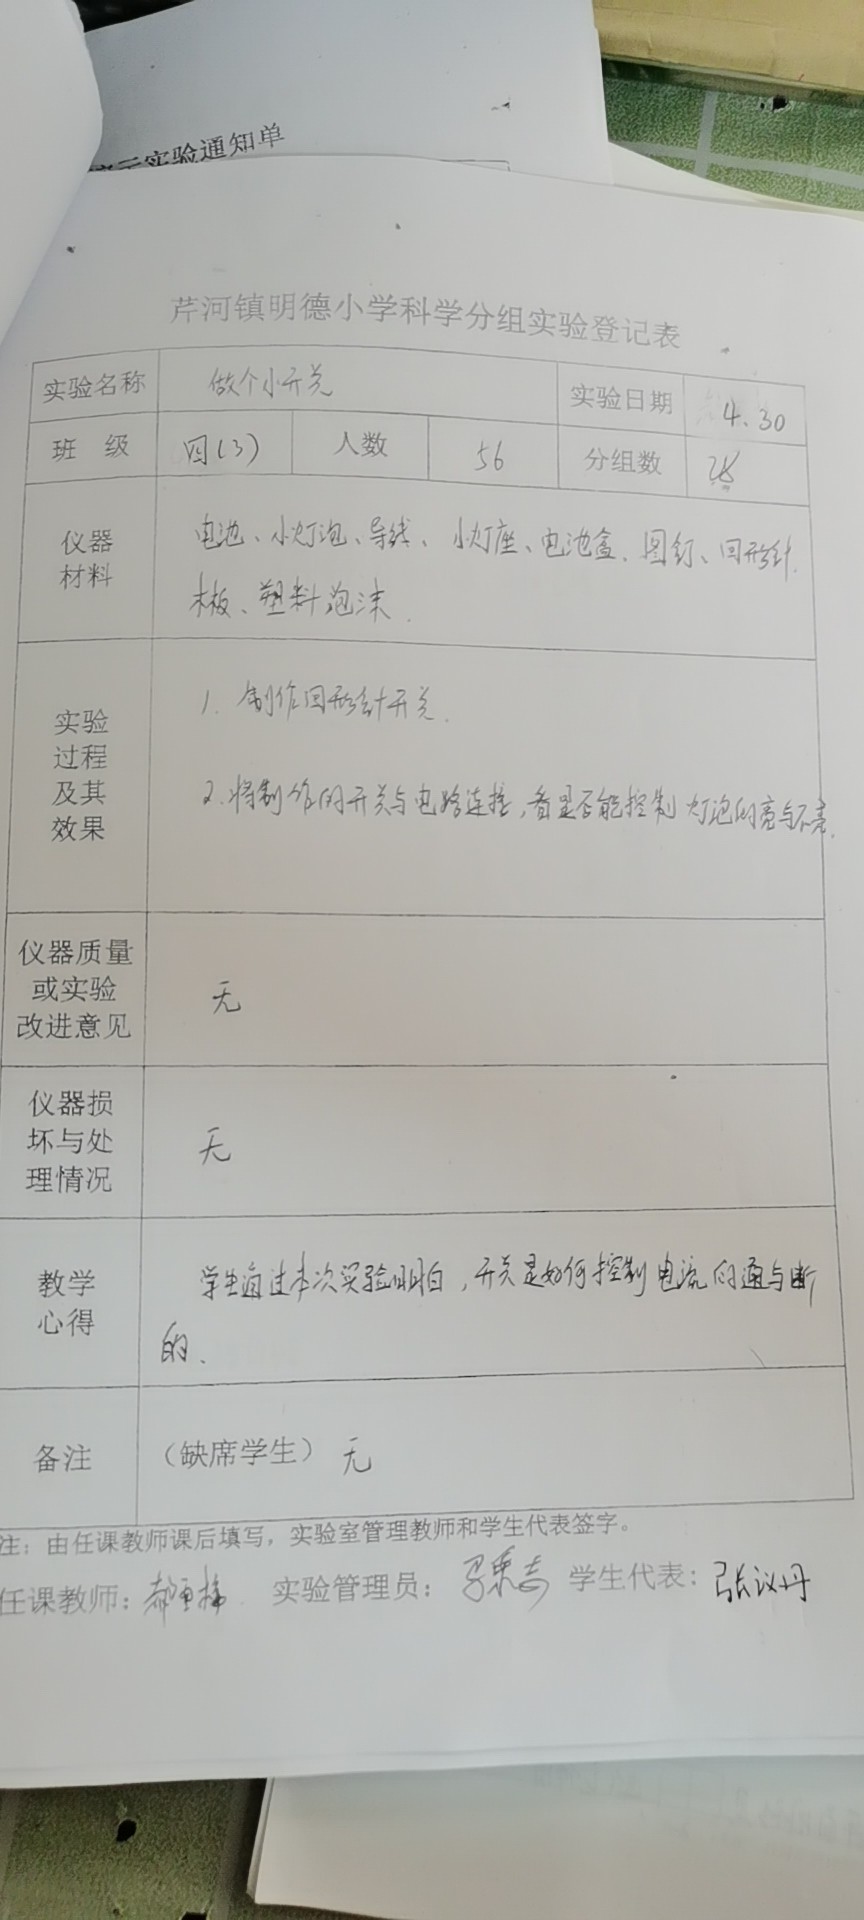 实验通知单
芹河镇明德小学科学分组实验登记表
实验名称 做个小开关 实验日期 4.30
班 级 四(3) 人数 56 分组数 28
仪器
材料
电池、小灯泡、导线、小灯座、电池盒、图钉、回形针、
木板、塑料泡沫.
实验
过程
及其
效果
1. 制作回形针开关.
2.将制作的开关与电路连接,看是否能控制灯泡的亮与不亮.
仪器质量
或实验
改进意见
无
仪器损
坏与处
理情况
无
教学
心得
学生通过本次实验明白,开关是如何控制电流的通与断
的.
备注 (缺席学生) 无
注:由任课教师课后填写,实验室管理教师和学生代表签字。
任课教师: 实验管理员: 学生代表: 张议丹